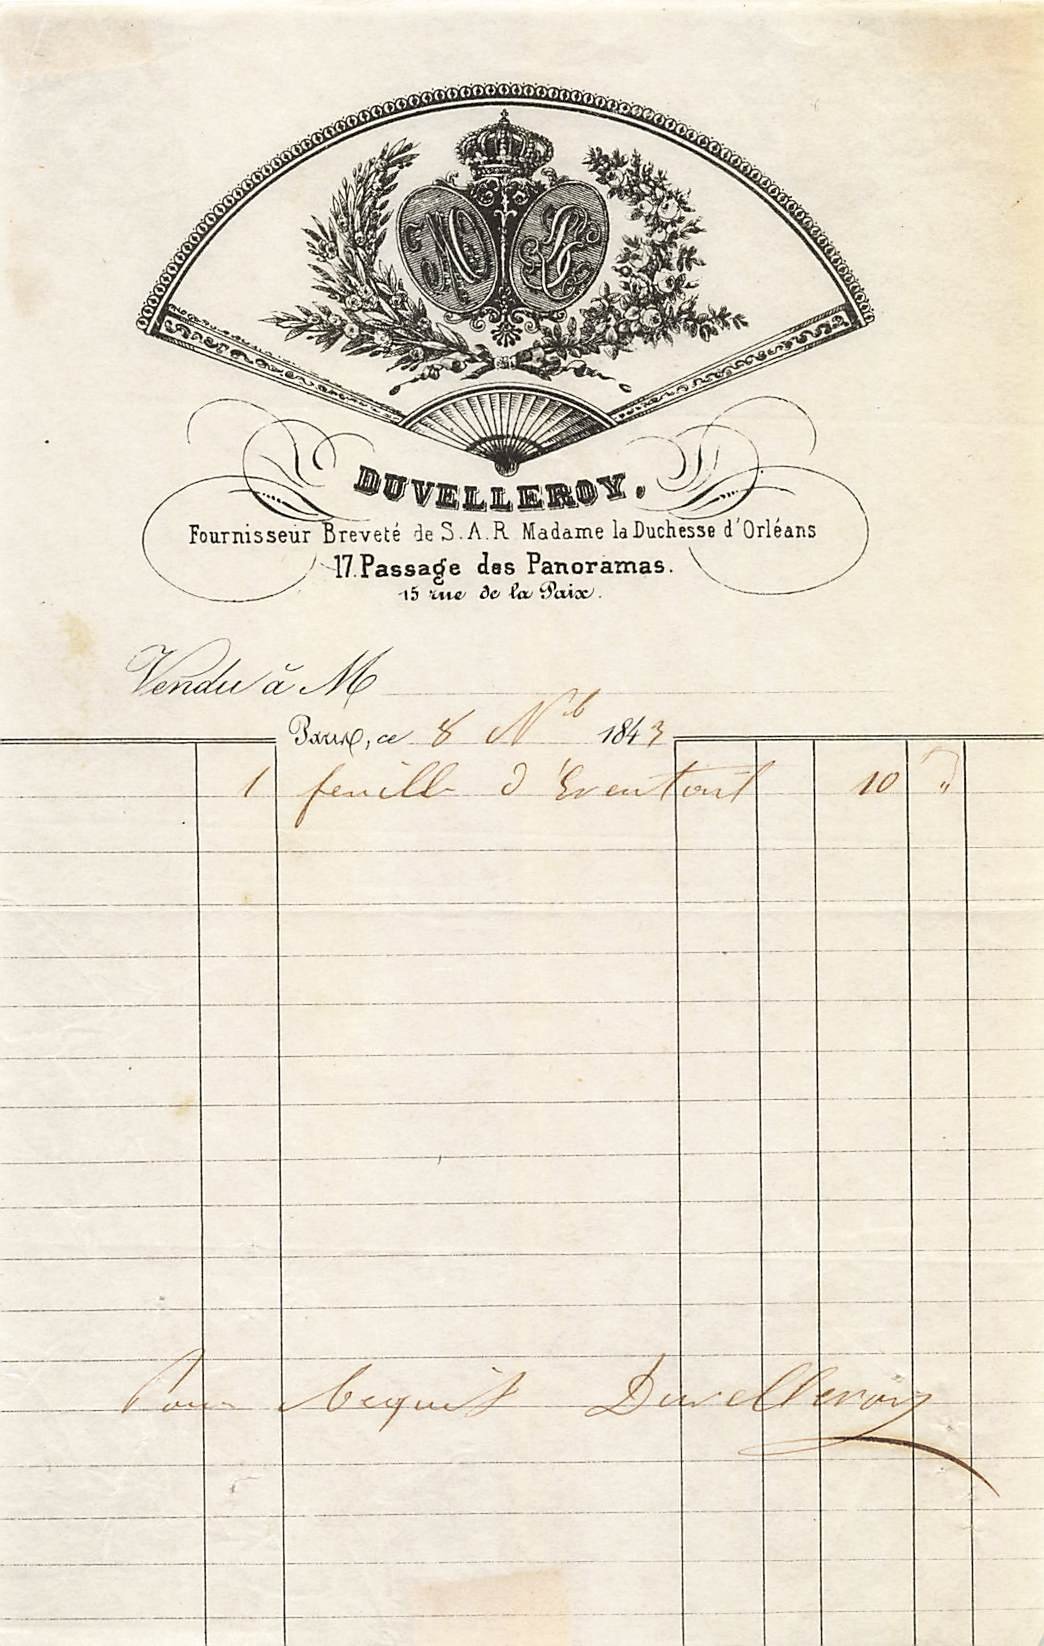 DUVELLEROY,
Fournisseur Breveté de S.A.R Madame la Duchesse d'Orléans
17. Passage des Panoramas.
15 rue de la Paix.
Vendu à M
Paris, ce 8 Nb 1843
1 feuille d' 10 "
Pour acquit Duvelleroy